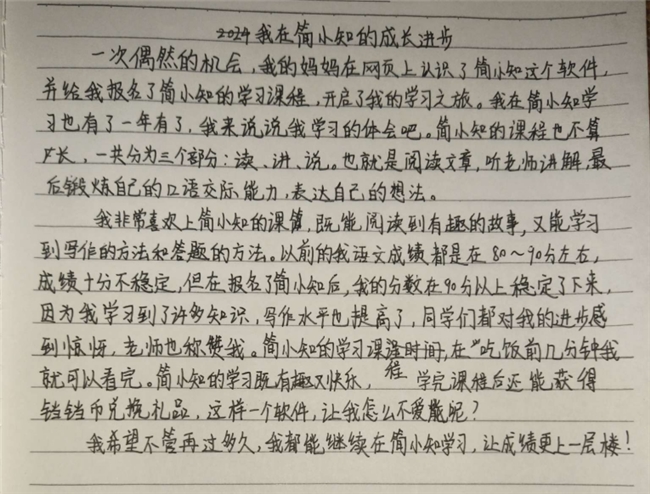 2024我在简小知的成长进步
一次偶然的机会，我的妈妈在网页上认识了简小知这个软件，
并给我报名了简小知的学习课程，开启了我的学习之旅。我在简小知学
习也有了一年有了，我来说说我学习的体会吧。简小知的课程也不算
太长，一共分为三个部分：读、讲、说。也就是阅读文章，听老师讲解，最
后锻炼自己的口语交际能力，表达自己的想法。
我非常喜欢上简小知的课，既能阅读到有趣的故事，又能学习
到写作的方法和答题的方法。以前的我语文成绩都是在80～90分左右，
成绩十分不稳定，但在报名了简小知后，我的分数在90分以上稳定了下来，
因为我学习到了许多知识，写作水平也提高了，同学们都对我的进步感
到惊讶，老师也称赞我。简小知的学习课程时间，在"吃饭前几分钟我
就可以看完。简小知的学习既有趣又快乐，学完课程后还能获得
铛铛币兑换礼品，这样一个软件，让我怎么不爱呢？
我希望不管再过多久，我都能继续在简小知学习，让成绩更上一层楼！